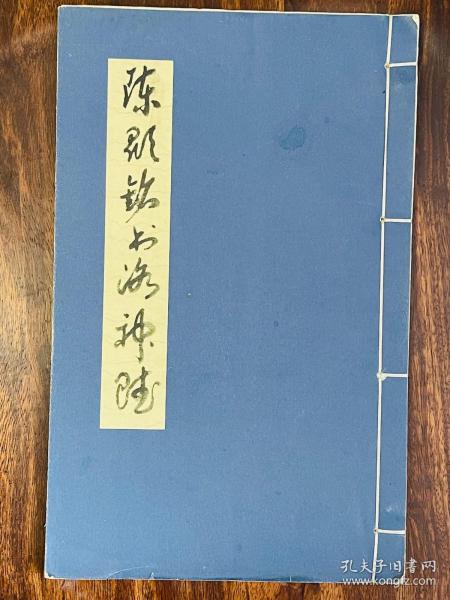 陈显铭书洛神赋
孔夫子旧书网
www.kongfz.com